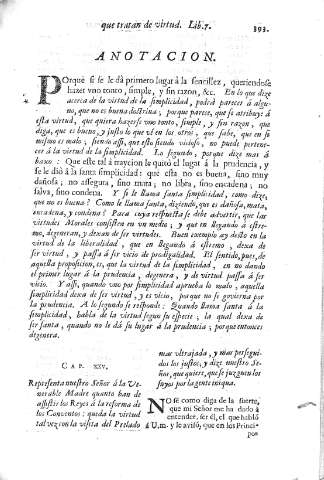 que tratan de virtud. Lib.7. 393.
ANOTACION.
POrquè si se le dà primero lugar à la sencillez, queriendose
hazer vno tonto, simple, y sin razon, &c. En lo que dize
acerca de la virtud de la simplicidad, podrà parecer à algu-
no, que no es buena doctrina; porque parece, que se atribuye à
esta virtud, que quiera hazerse vno tonto, simple, y sin razon, que
diga, que es bueno, y justo lo que vè en los otros, que sabe, que en si
mismo es malo; siendo assi, que esto siendo vicioso, no puede pertene-
cer à la virtud de la simplicidad. Lo segundo, porque dize mas à
baxo: Que este tal à traycion le quitò el lugar à la prudencia, y
se le diò à la santa simplicidad: que esta no es buena, sino muy
dañosa; no assegura, sino mata; no libra, sino encadena; no
salva, sino condena. Y si se llama santa simplicidad, como dize,
que no es buena? Como le llama santa, diziendo, que es dañosa, mata,
encadena, y condena? Para cuya respuesta se debe advertir, que las
virtudes Morales consisten en un medio; y que en llegando à estre-
mo, degeneran, y dexan de ser virtudes. Buen exemplo ay desto en la
virtud de la liberalidad, que en llegando à estremo, dexa de
ser virtud, y passa à ser vicio de prodigalidad. El sentido, pues, de
aquella proposicion, es, que la virtud de la simplicidad, en no dando
el primer lugar à la prudencia, degenera, y de virtud passa à ser
vicio. Y assi, quando vno por simplicidad aprueba lo malo, aquella
simplicidad dexa de ser virtud, y es vicio, porque no se govierna por
la prudencia. A lo segundo se responde: Quando llama santa à la
simplicidad, habla de la virtud segun su especie; la qual dexa de
ser santa, quando no le dà su lugar à la prudencia; porque entonces
degenera.
CAP. XXV.
Representa nuestro Señor à la Ve-
nerable Madre quanto han de
assistir los Reyes à la reforma de
los Conventos: queda la virtud
tal vez con la visita del Prelado
mas vltrajada, y mas persegui-
dos los justos, y dize nuestro Se-
ñor, que quiere, que se juzguen los
suyos por la gente iniqua.
NO sè como diga de la suerte,
que mi Señor me ha dado à
entender, ser èl, el que hablò
à V.m. y le avisò, que en los Princi-
pios